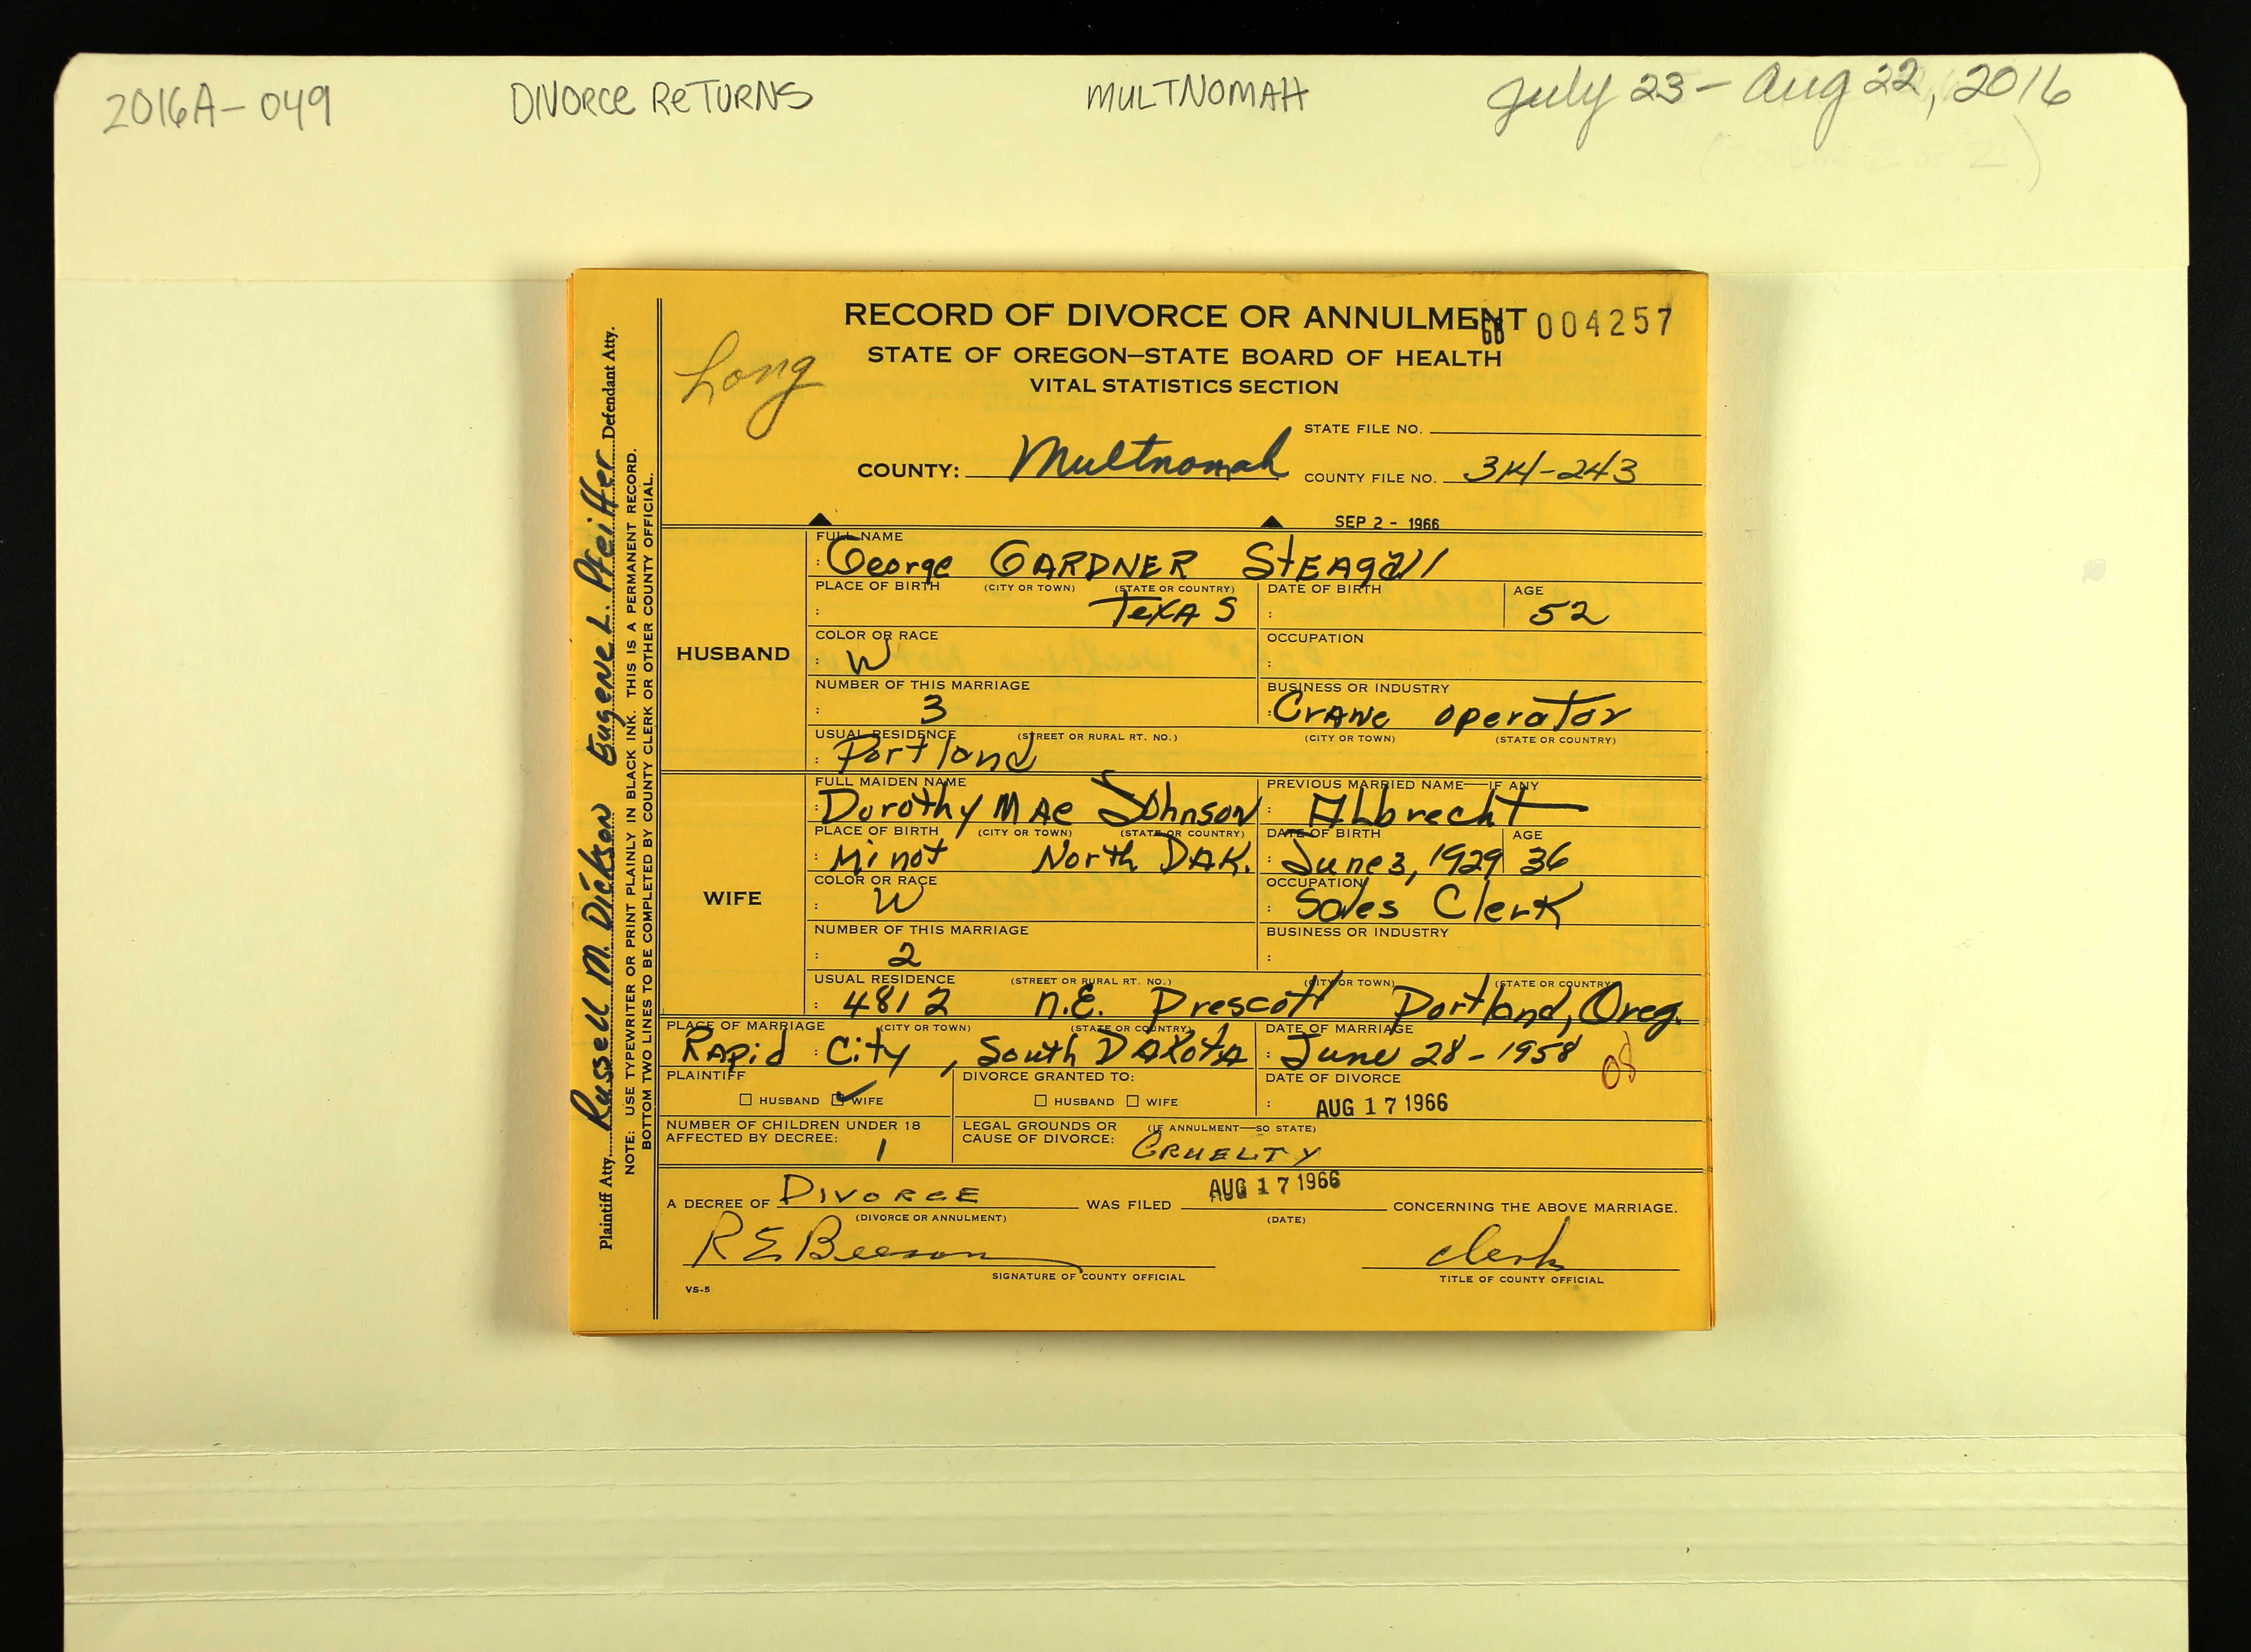 2016A-049 DIVORCE RETURNS MULTNOMAH July 23 - Aug 22, 2016
RECORD OF DIVORCE OR ANNULMENT 66 004257
STATE OF OREGON—STATE BOARD OF HEALTH
VITAL STATISTICS SECTION
Long
STATE FILE NO.
COUNTY: Multnomah COUNTY FILE NO. 314-243
SEP 2 - 1966
HUSBAND
FULL NAME
George GARDNER StEAgall
PLACE OF BIRTH (CITY OR TOWN) (STATE OR COUNTRY) DATE OF BIRTH AGE
: TexAS : 52
COLOR OR RACE OCCUPATION
: W :
NUMBER OF THIS MARRIAGE BUSINESS OR INDUSTRY
: 3 : CrANe operator
USUAL RESIDENCE (STREET OR RURAL RT. NO.) (CITY OR TOWN) (STATE OR COUNTRY)
: Portland
WIFE
FULL MAIDEN NAME PREVIOUS MARRIED NAME—IF ANY
: Dorothy MAe Johnson : ALbrecht
PLACE OF BIRTH (CITY OR TOWN) (STATE OR COUNTRY) DATE OF BIRTH AGE
: Minot North DAK. : June 3, 1929 36
COLOR OR RACE OCCUPATION
: W : Sales Clerk
NUMBER OF THIS MARRIAGE BUSINESS OR INDUSTRY
: 2 :
USUAL RESIDENCE (STREET OR RURAL RT. NO.) (CITY OR TOWN) (STATE OR COUNTRY)
: 4812 N.E. Prescott Portland, Oreg.
PLACE OF MARRIAGE (CITY OR TOWN) (STATE OR COUNTRY) DATE OF MARRIAGE
RApid : City, South DAKotA : June 28 - 1958 08
PLAINTIFF DIVORCE GRANTED TO: DATE OF DIVORCE
HUSBAND WIFE HUSBAND WIFE : AUG 17 1966
NUMBER OF CHILDREN UNDER 18 LEGAL GROUNDS OR (IF ANNULMENT—SO STATE)
AFFECTED BY DECREE: 1 CAUSE OF DIVORCE: CRUELTY
A DECREE OF DIVORCE WAS FILED AUG 17 1966 CONCERNING THE ABOVE MARRIAGE.
(DIVORCE OR ANNULMENT) (DATE)
R E Beeson clerk
SIGNATURE OF COUNTY OFFICIAL TITLE OF COUNTY OFFICIAL
VS-5
Plaintiff Atty. Russell M. Dickson Eugene L. Pfeiffer Defendant Atty.
NOTE: USE TYPEWRITER OR PRINT PLAINLY IN BLACK INK. THIS IS A PERMANENT RECORD.
BOTTOM TWO LINES TO BE COMPLETED BY COUNTY CLERK OR OTHER COUNTY OFFICIAL.